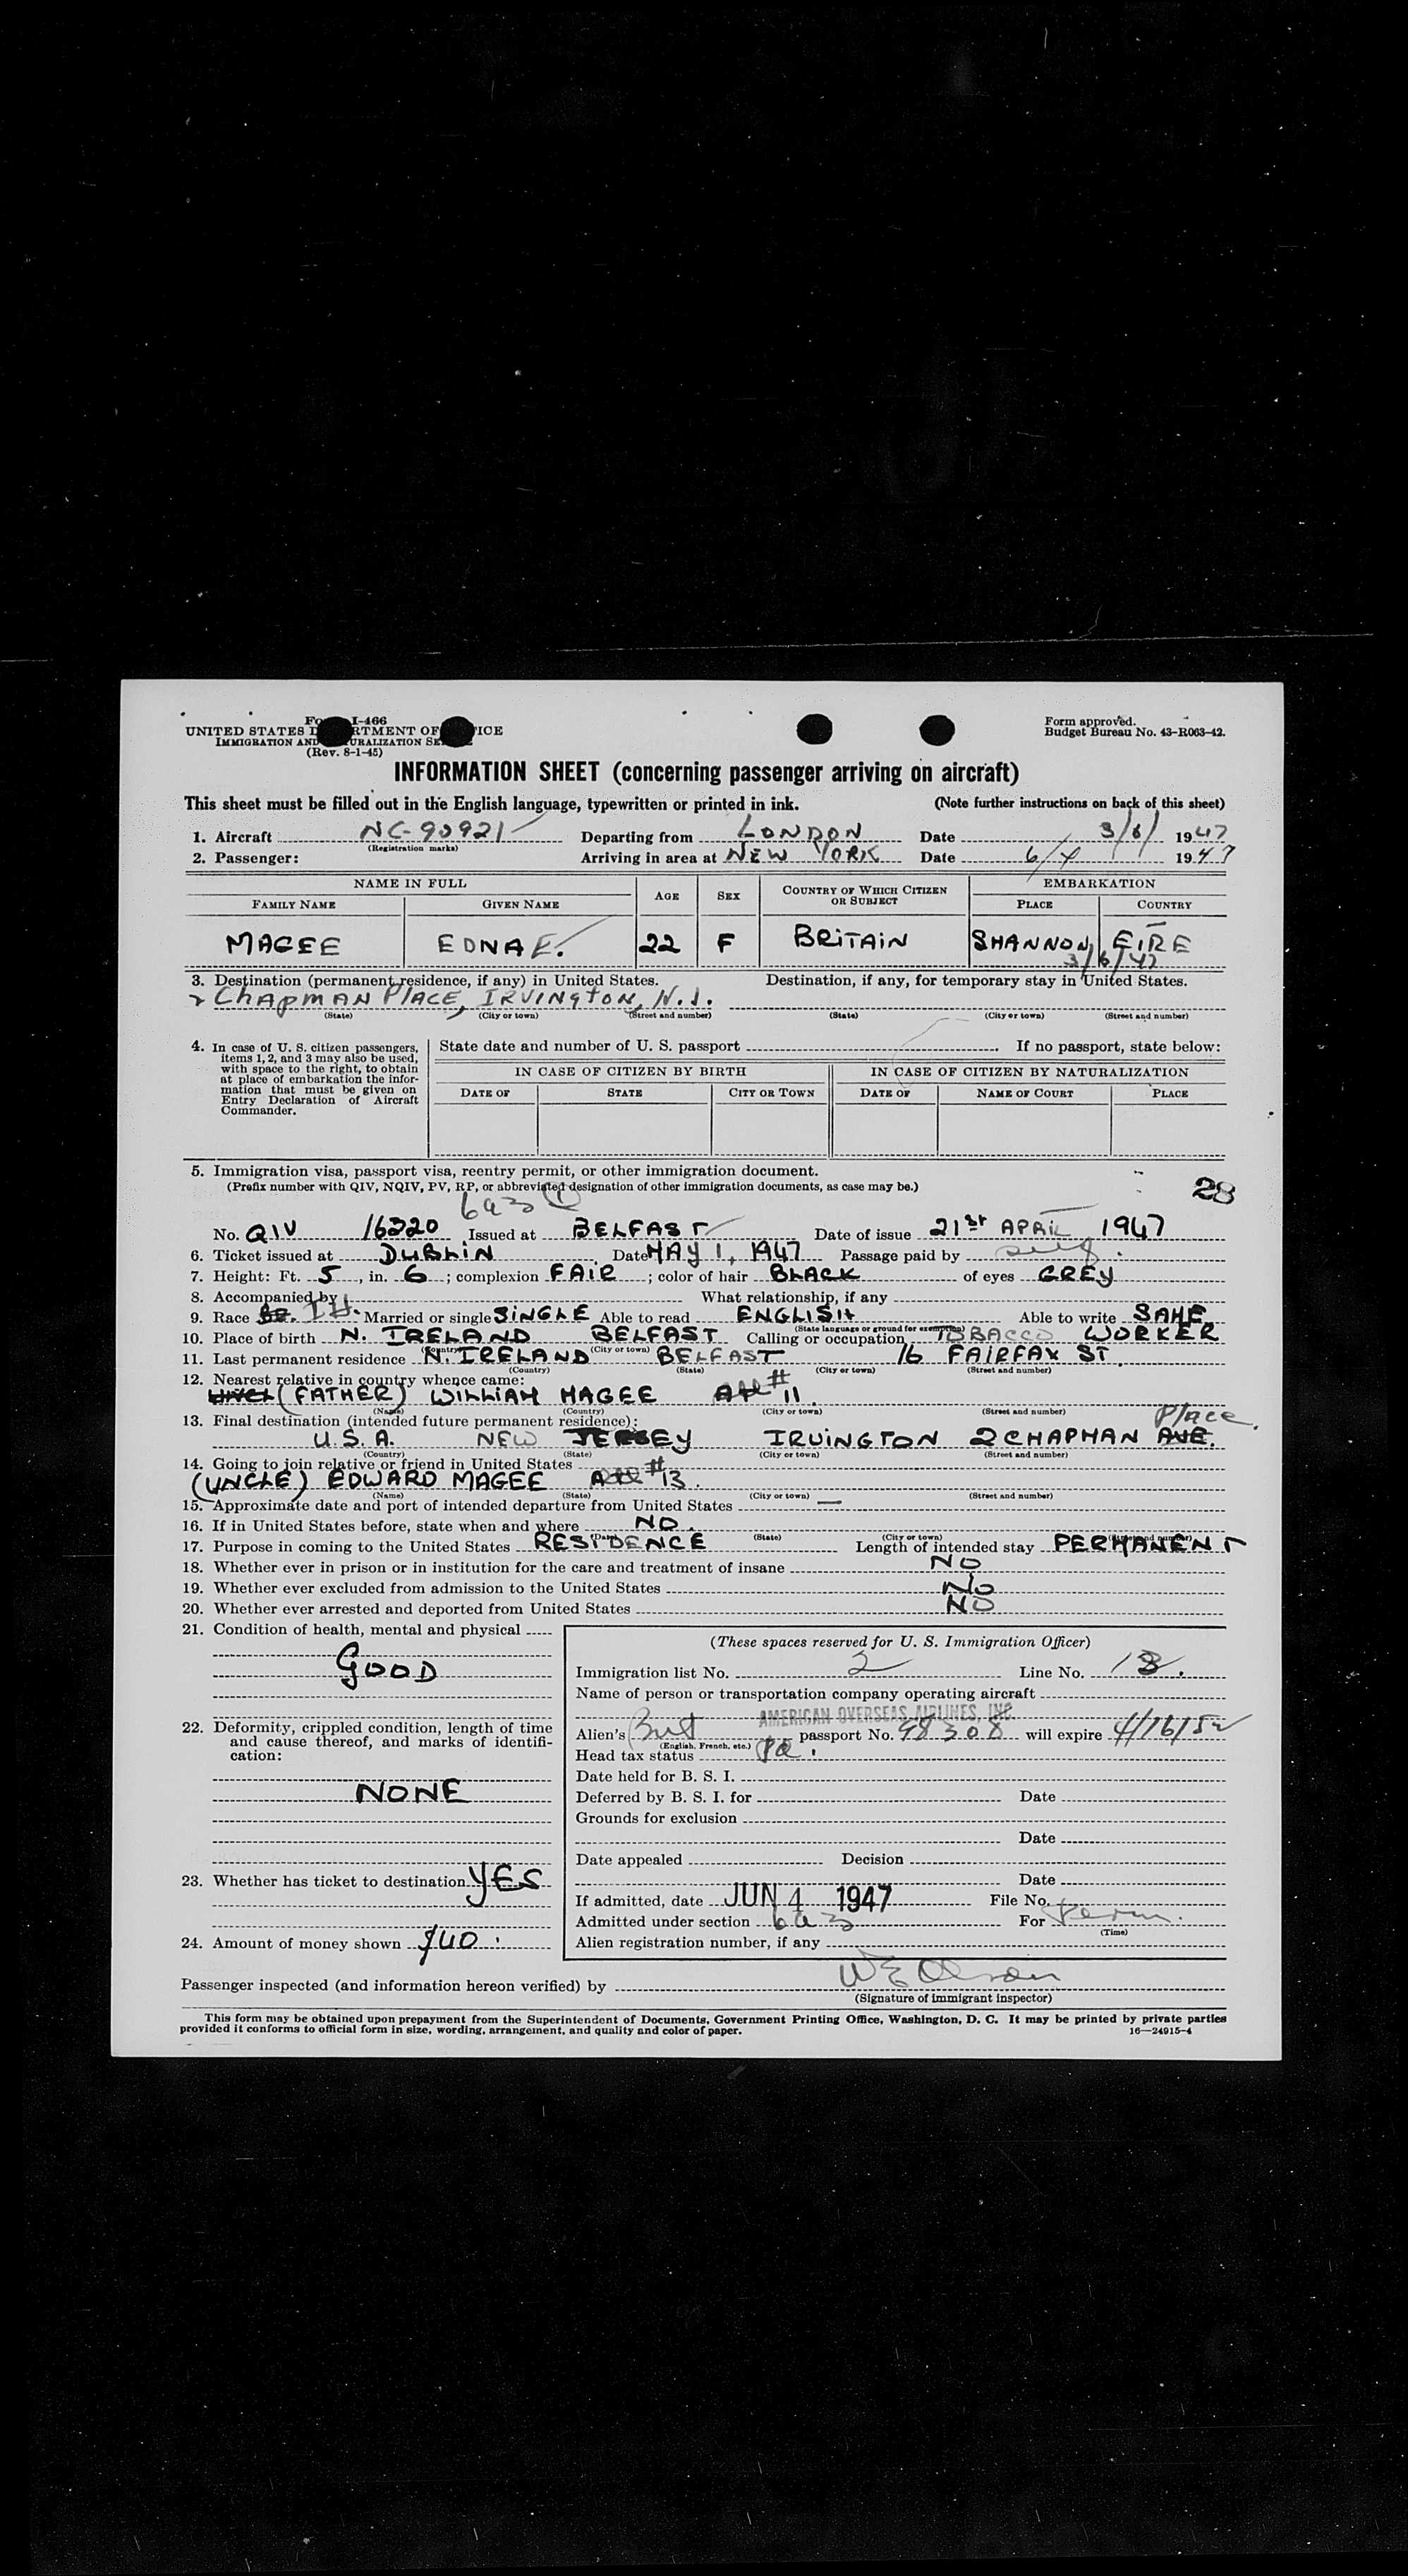 Form I-466
UNITED STATES DEPARTMENT OF JUSTICE
IMMIGRATION AND NATURALIZATION SERVICE
(Rev. 8-1-45)
Form approved.
Budget Bureau No. 43-R063-42.
INFORMATION SHEET (concerning passenger arriving on aircraft)
This sheet must be filled out in the English language, typewritten or printed in ink. (Note further instructions on back of this sheet)
1. Aircraft NC-90921 Departing from LONDON Date 3/6/ 1947
(Registration marks)
2. Passenger: Arriving in area at NEW YORK Date 6/4 1947
NAME IN FULL AGE SEX COUNTRY OF WHICH CITIZEN OR SUBJECT EMBARKATION
FAMILY NAME GIVEN NAME PLACE COUNTRY
MAGEE EDNA E. 22 F BRITAIN SHANNON EIRE
3/6/47
3. Destination (permanent residence, if any) in United States. Destination, if any, for temporary stay in United States.
2 Chapman Place, Irvington, N.J.
(State) (City or town) (Street and number) (State) (City or town) (Street and number)
4. In case of U. S. citizen passengers, items 1, 2, and 3 may also be used, with space to the right, to obtain at place of embarkation the information that must be given on Entry Declaration of Aircraft Commander.
State date and number of U. S. passport If no passport, state below:
IN CASE OF CITIZEN BY BIRTH IN CASE OF CITIZEN BY NATURALIZATION
DATE OF STATE CITY OR TOWN DATE OF NAME OF COURT PLACE
5. Immigration visa, passport visa, reentry permit, or other immigration document.
(Prefix number with QIV, NQIV, PV, RP, or abbreviated designation of other immigration documents, as case may be.)
28
6a3 (1)
No. QIV 16220 Issued at BELFAST Date of issue 21st APRIL 1947
6. Ticket issued at DUBLIN Date MAY 1, 1947 Passage paid by self.
7. Height: Ft. 5, in. 6; complexion FAIR; color of hair BLACK of eyes GREY
8. Accompanied by What relationship, if any
9. Race Br. IH. Married or single SINGLE Able to read ENGLISH Able to write SAME
(State language or ground for exemption)
10. Place of birth N. IRELAND BELFAST Calling or occupation TOBACCO WORKER
(Country) (City or town)
11. Last permanent residence N. IRELAND BELFAST 16 FAIRFAX ST.
(Country) (State) (City or town) (Street and number)
12. Nearest relative in country whence came:
(FATHER) WILLIAM MAGEE # 11.
(Name) (Country) (City or town) (Street and number)
13. Final destination (intended future permanent residence): Place.
U.S.A. NEW JERSEY IRVINGTON 2 CHAPMAN AVE.
(Country) (State) (City or town) (Street and number)
14. Going to join relative or friend in United States
(UNCLE) EDWARD MAGEE # 13.
(Name) (State) (City or town) (Street and number)
15. Approximate date and port of intended departure from United States —
16. If in United States before, state when and where NO.
(Date) (State) (City or town) (Street and number)
17. Purpose in coming to the United States RESIDENCE Length of intended stay PERMANENT
18. Whether ever in prison or in institution for the care and treatment of insane NO
19. Whether ever excluded from admission to the United States NO
20. Whether ever arrested and deported from United States NO
21. Condition of health, mental and physical
GOOD
22. Deformity, crippled condition, length of time and cause thereof, and marks of identification:
NONE
23. Whether has ticket to destination YES
24. Amount of money shown $40.
(These spaces reserved for U. S. Immigration Officer)
Immigration list No. 2 Line No. 13.
Name of person or transportation company operating aircraft
AMERICAN OVERSEAS AIRLINES, INC.
Alien's Brit passport No. 98308 will expire 4/16/52
(English, French, etc.)
Head tax status pd.
Date held for B. S. I.
Deferred by B. S. I. for Date
Grounds for exclusion
Date
Date appealed Decision
Date
If admitted, date JUN 4 1947 File No.
Admitted under section 6a3 For Perm.
(Time)
Alien registration number, if any
Passenger inspected (and information hereon verified) by W E Olson
(Signature of immigrant inspector)
This form may be obtained upon prepayment from the Superintendent of Documents, Government Printing Office, Washington, D. C. It may be printed by private parties
provided it conforms to official form in size, wording, arrangement, and quality and color of paper. 16—24915-4